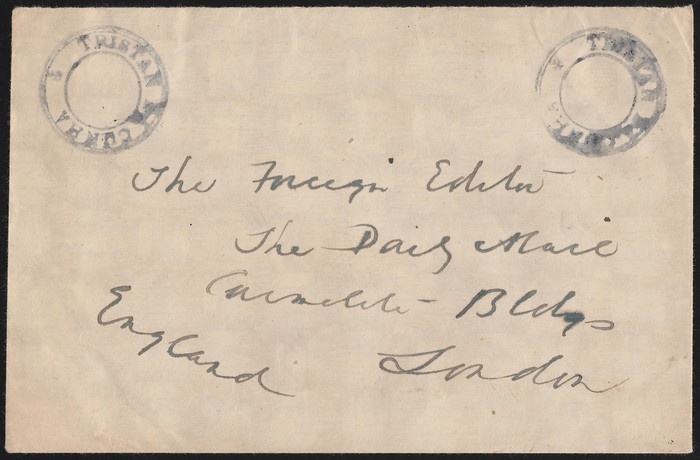 TRISTAN DA CUNHA
TRISTAN DA CUNHA
The Foreign Editor
The Daily Mail
Carmelite Bldgs
London
England